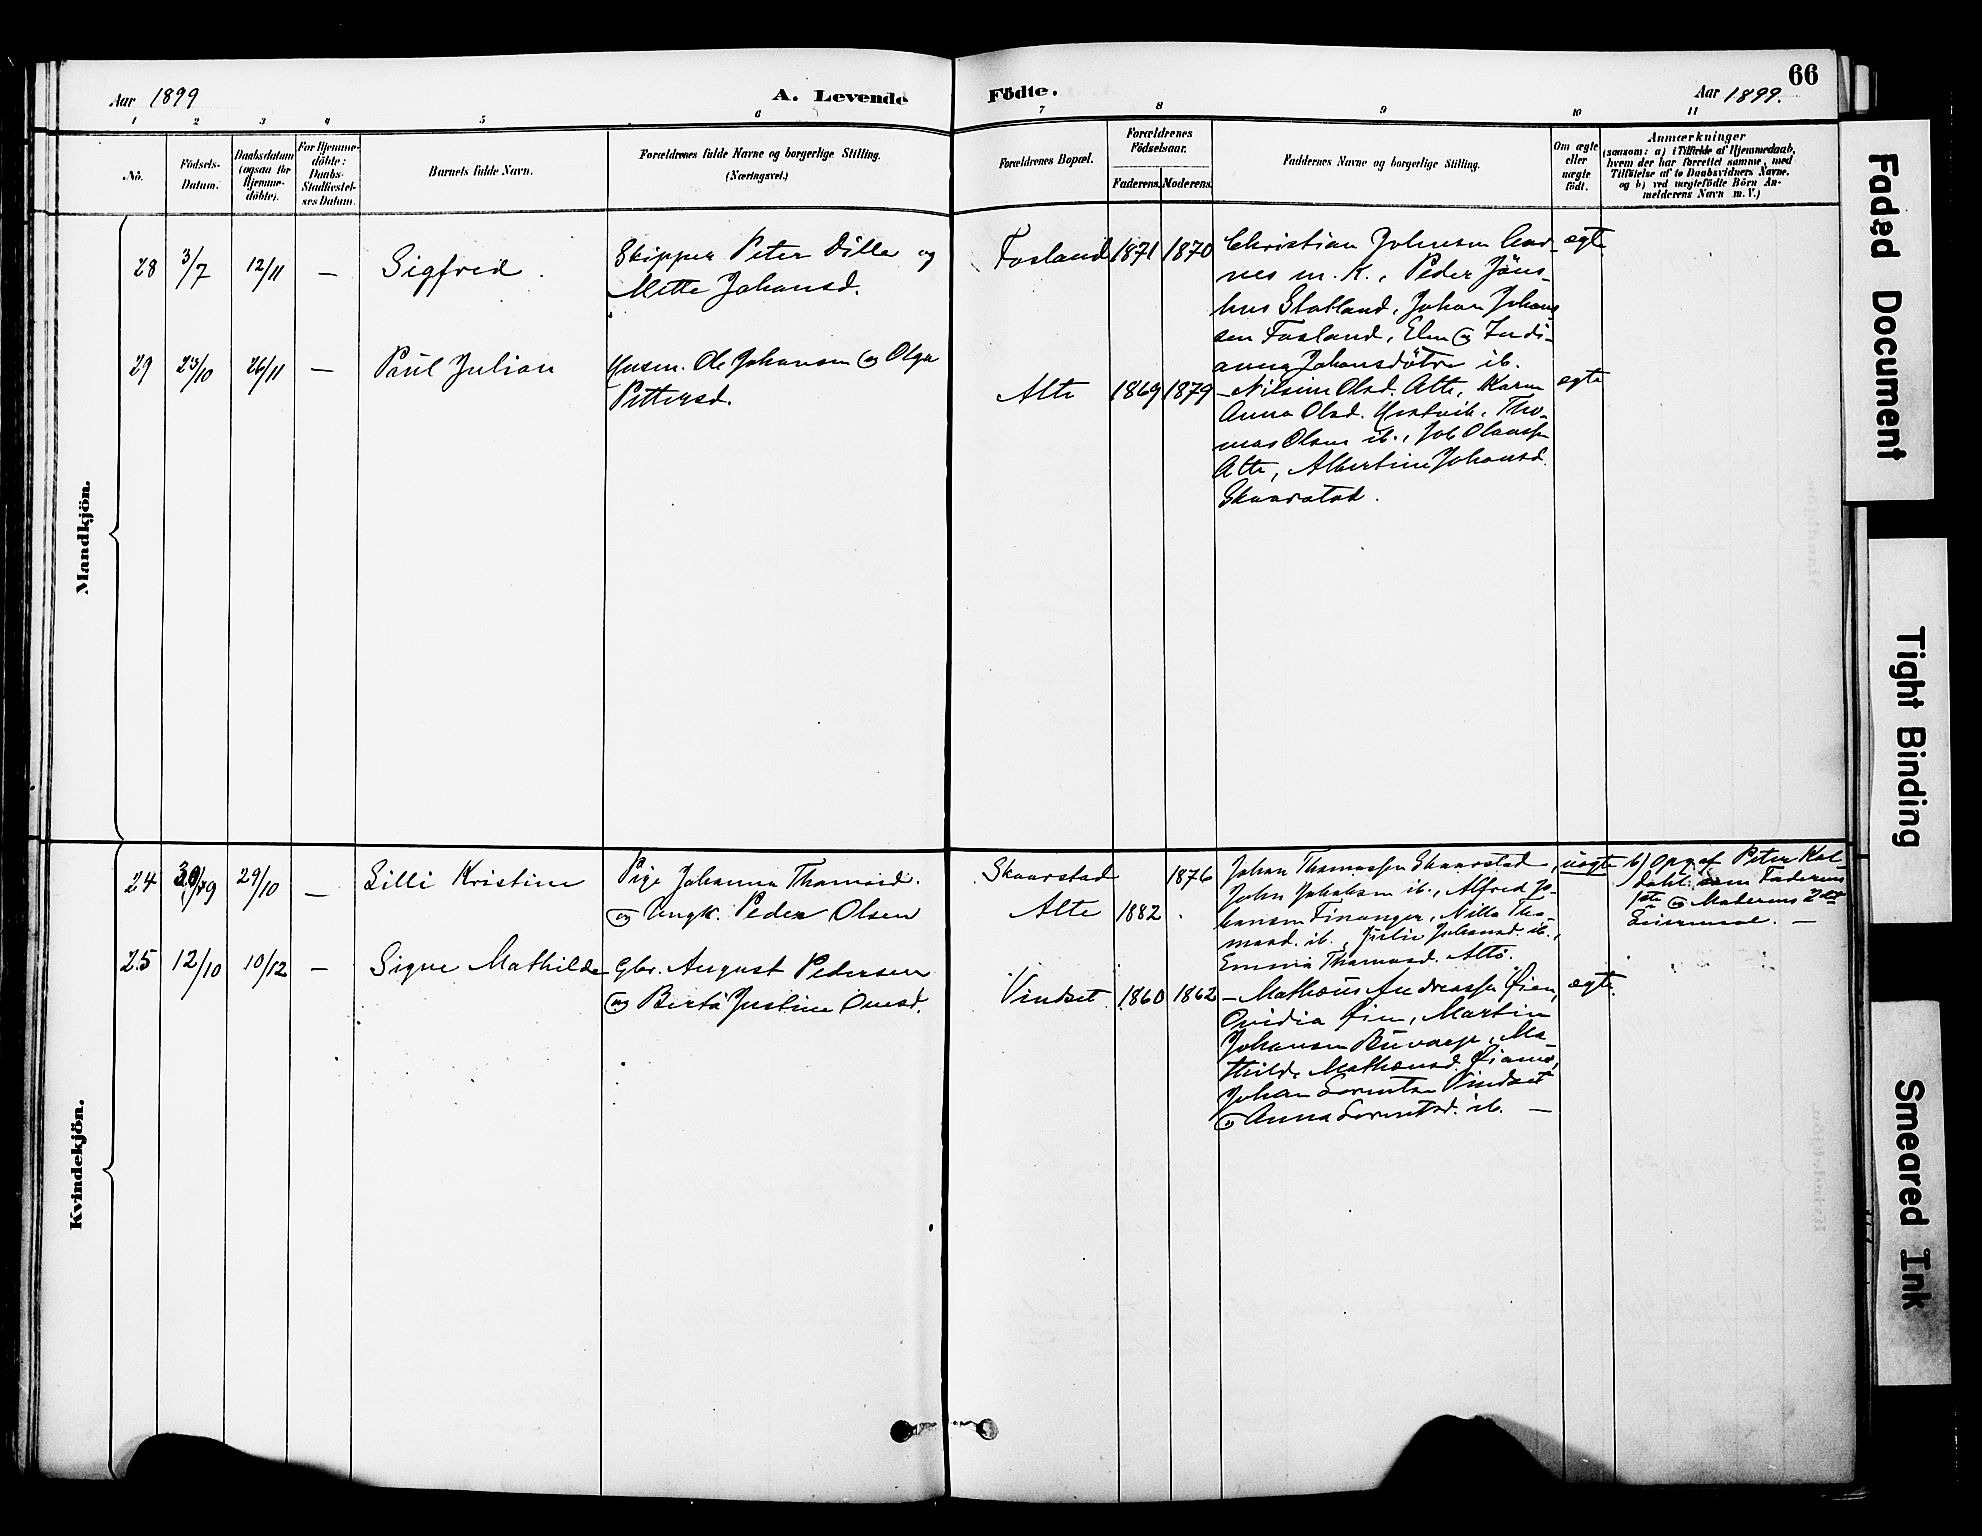 66
Aar 1899
A. Levende
Födte.
Aar 1899.
1 2 3 4 5 6 7 8 9 10 11
No.
Födsels-
Datum.
Daabsdatum
(ogsaa for
Hjemme-
döbte).
For Hjemme-
döbte:
Daabs-
Stadfæstel-
ses Datum.
Barnets fulde Navn.
Forældrenes fulde Navne og borgerlige Stilling.
(Næringsvei.)
Forældrenes Bopæl.
Forældrenes
Födselsaar.
Faderens. Moderens.
Faddernes Navne og borgerlige Stilling.
Om ægte
eller
uægte
født.
Anmærkninger
(saasom: a) i Tilfælde af Hjemmedaab,
hvem der har forrettet samme, med
Tilföielse af to Daabsvidners Navne.
og b) ved uægtefödte Börn An-
melderens Navn m. V.)
Mandkjön.
28 3/7 12/11 — Sigfred.
Skipper Peter Dille og
Mette Johansd.
Fosland 1871 1870
Christian Johnsen
nes m. K., Peder Jöns-
hus Statland, Johan Johan
sen Fosland, Elen og Indi-
anna Johansdötre ib.
ægte
29 23/10 26/11 — Paul Julian
Husm. Ole Johansen og Olga
Pettersd.
Alte 1869 1879
— Nilsine Olsd. Alte, Karen
Anna Olsd. Hostvik, Tho-
mas Olsen ib., Job Olaussen
Alte, Albertine Johansd.
Skaarstad.
ægte
Kvindekjön.
24 30/9 29/10 — Lilli Kristine
Pige Johanna Thomasd.
og Ungk. Peder Olsen
Skaarstad 1876
Alte 1882
Johan Thomassen Skaarstad,
John Jakobsen ib., Alfred Jo-
hansen Finanger, Nilla Tho-
masd. ib., Julie Johansd. ib.,
Emma Thomasd. Alte.
uægte
b) Opg. af Peter Kal-
dahl som Faderens
1ste og Moderens 2det
Leiermaal. —
25 12/10 10/12 — Signe Mathilde
Gbr. August Pedersen
og Berta Justine Ovesd.
Vindset 1860 1862
— Mathæus Andreassen Øien,
Ovidia Øien, Martin
Johansen Buvarp, Ma-
thilde Mathæusd. Øiamo,
Johan Lorentsen Vindset
og Anna Lorentsd. ib. —
ægte.
Faded Document
Tight Binding
Smeared Ink